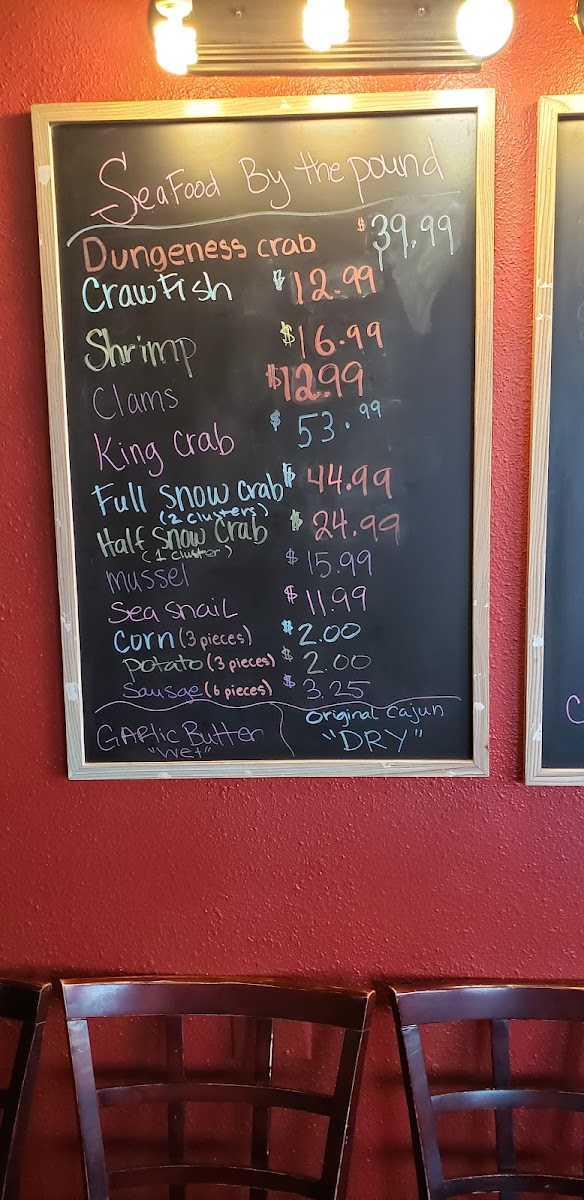 SeaFood By the pound
Dungeness crab $39.99
CrawFish $12.99
Shrimp $16.99
Clams $12.99
King Crab $53.99
Full Snow Crab $44.99
(2 clusters)
Half Snow Crab $24.99
(1 cluster)
mussel $15.99
Sea Snail $11.99
Corn (3 pieces) $2.00
Potato (3 pieces) $2.00
Sausge (6 pieces) $3.25
GARlic Butter
"Wet"
Original Cajun
"DRY"
C